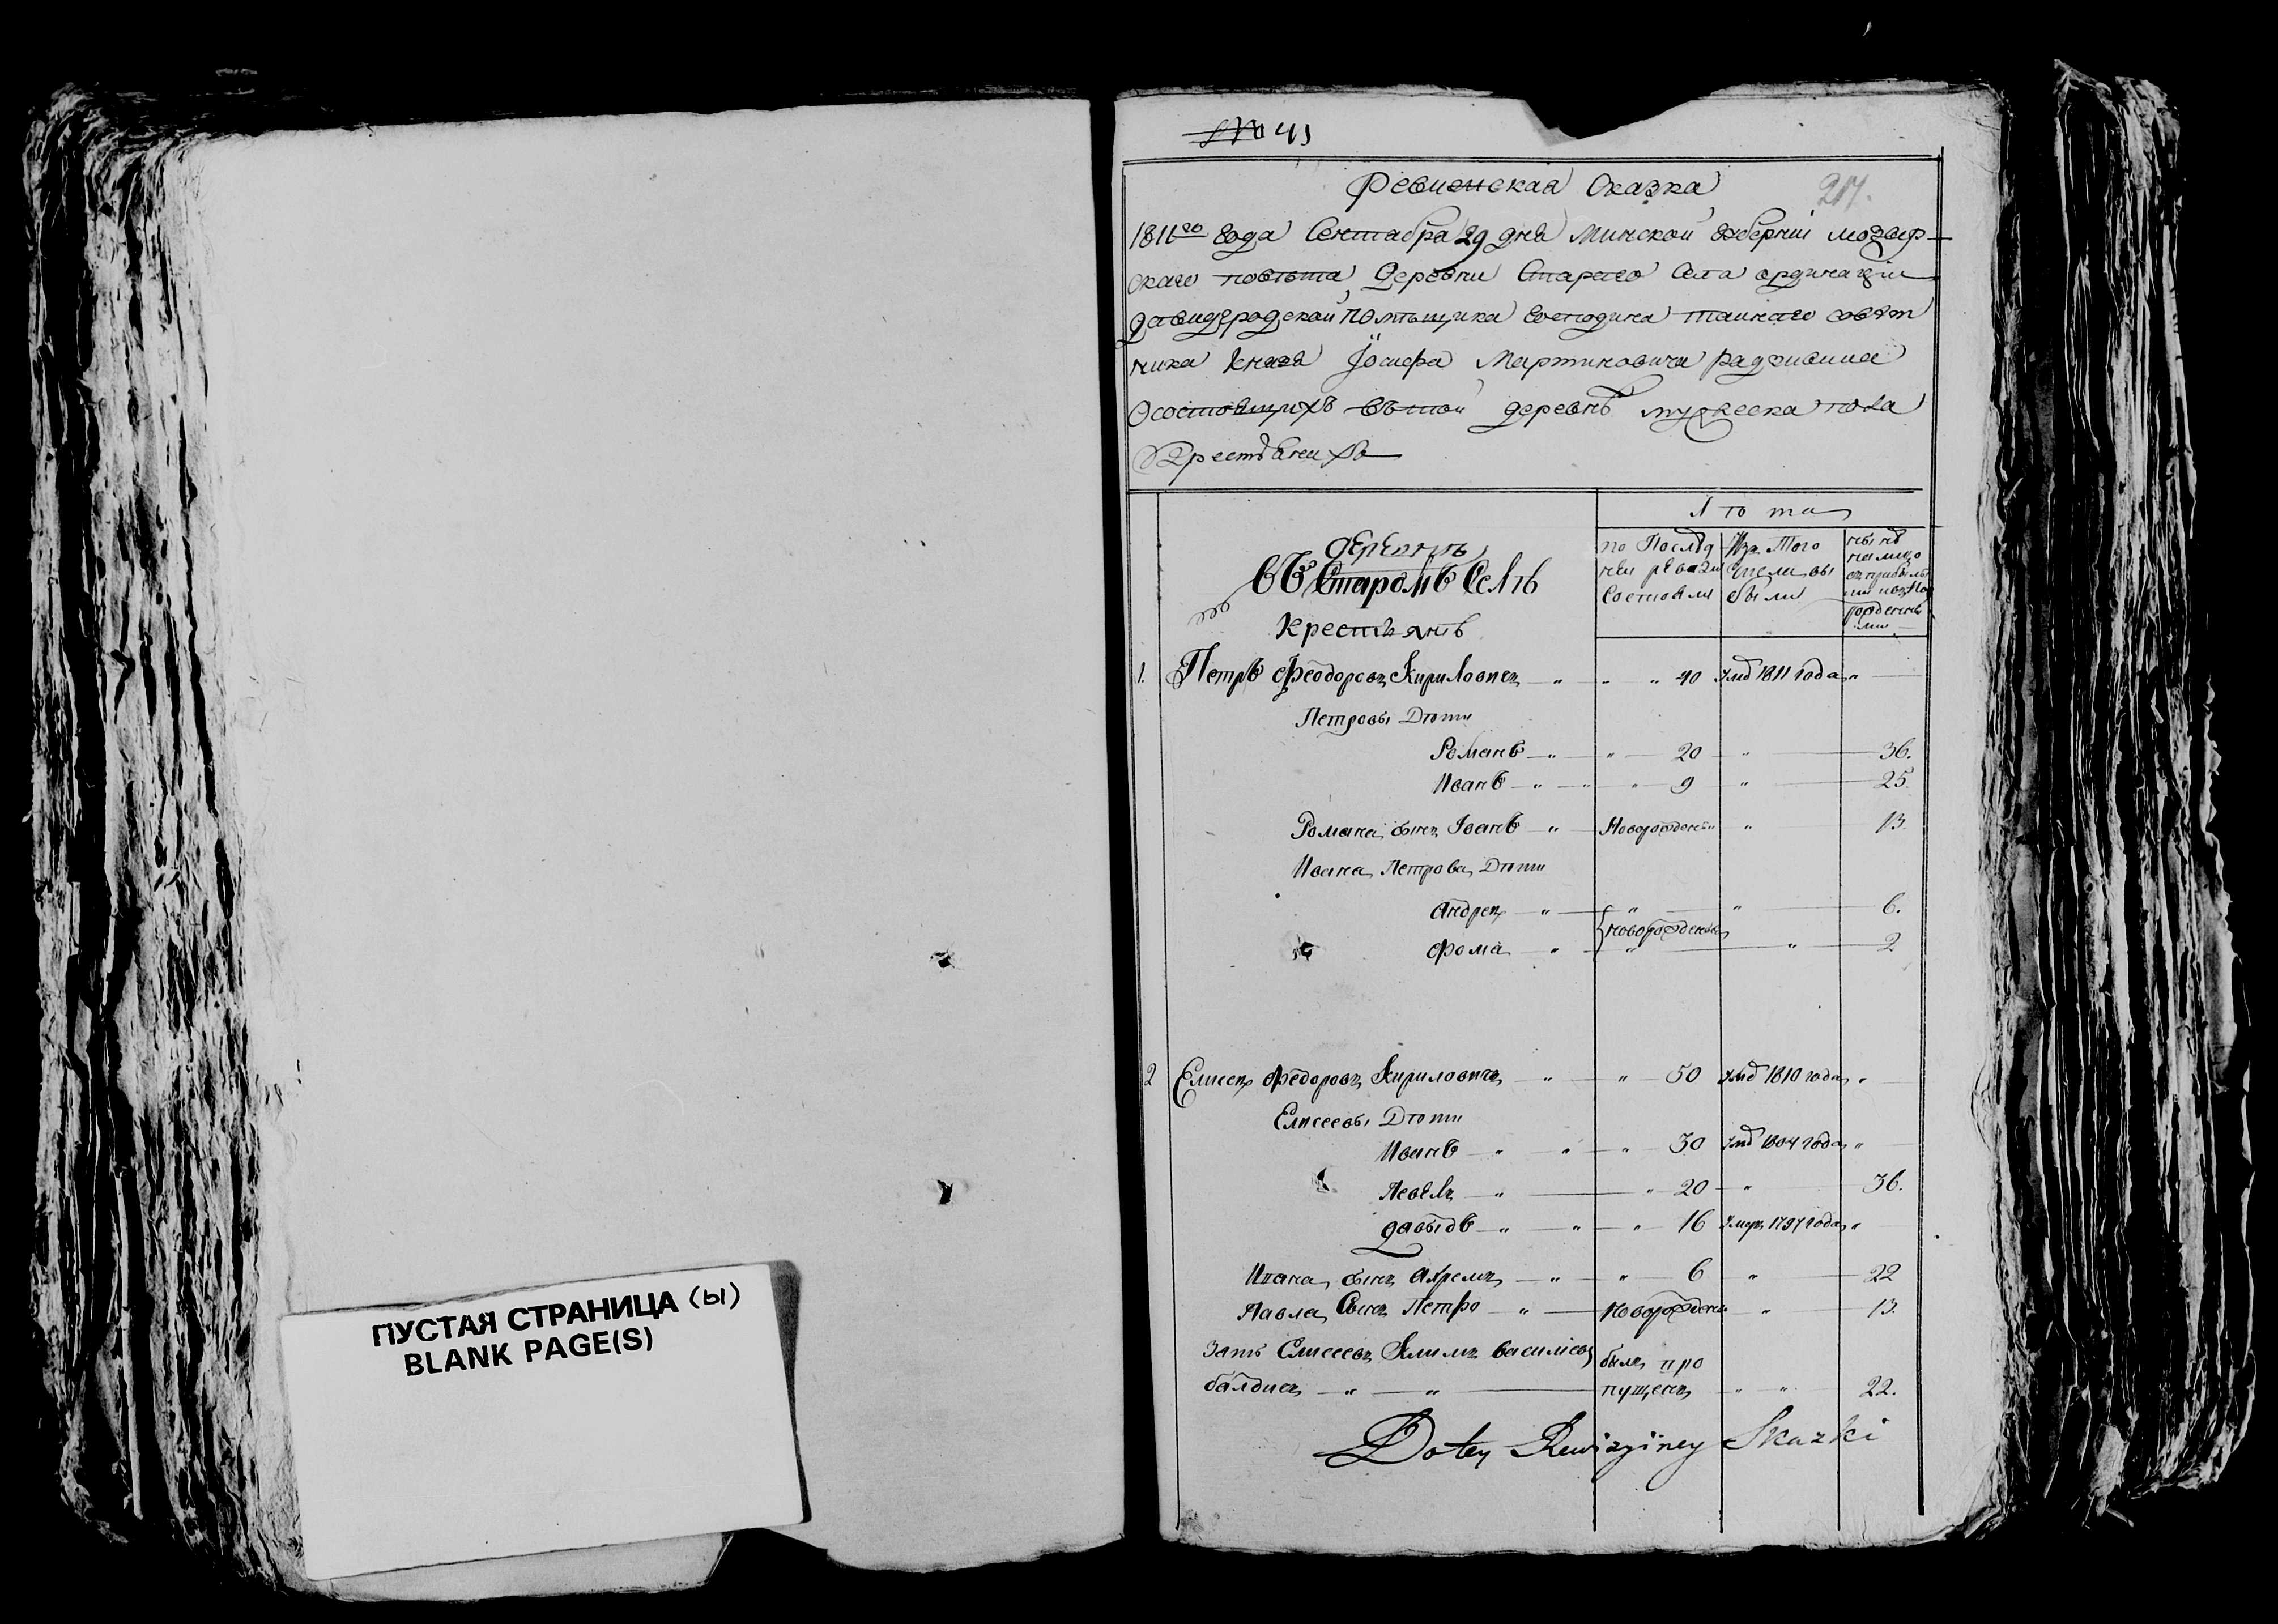 ПУСТАЯ СТРАНИЦА (ы)
BLANK PAGE(S)
№ 41
217.
Ревизская Сказка
1811го года Сентабра 29 дня Минской Губернии мозыр-
скаго повѣта Деревни Старого Села ординацїи
давидгродской помѣщика Господина таинаго совѣт
ника Князя Їосифа Мартиновича радзивила
О состоящихъ въ той деревнѣ мужеска пола
Крестьянихъ
Лѣта
деревнѣ
въ Старомъ Селѣ
Крестьянъ
по Послѣд
ней ревизи
Состояли
Изъ Того
Числа вы
были
нынѣ
на лицо
1. Петръ Феодоровъ Кириловичъ 40 Умѣ 1811 года
Петровы Дѣти
Романъ 20 36.
Иванъ 9 25.
Романа сынъ Іванъ Новорожденый 13.
Ивана Петрова Дѣти
Андрей 6.
новорожденые
Фома 2
2 Елисей Федоровъ Кириловичъ 50 Умѣ 1810 года
Елисеевы Дѣти
Иванъ 30 Умѣ 1804 года
Павелъ 20 36.
давыдъ 16 Умеръ 1797 года
Ивана сынъ Ахремъ 6 22
Павла Сынъ Петро Новорожденъ 13.
Зять Елисеевъ Климъ василіевъ былъ про
балдичъ пущенъ 22.
Do tey Rewizyiney Skazki